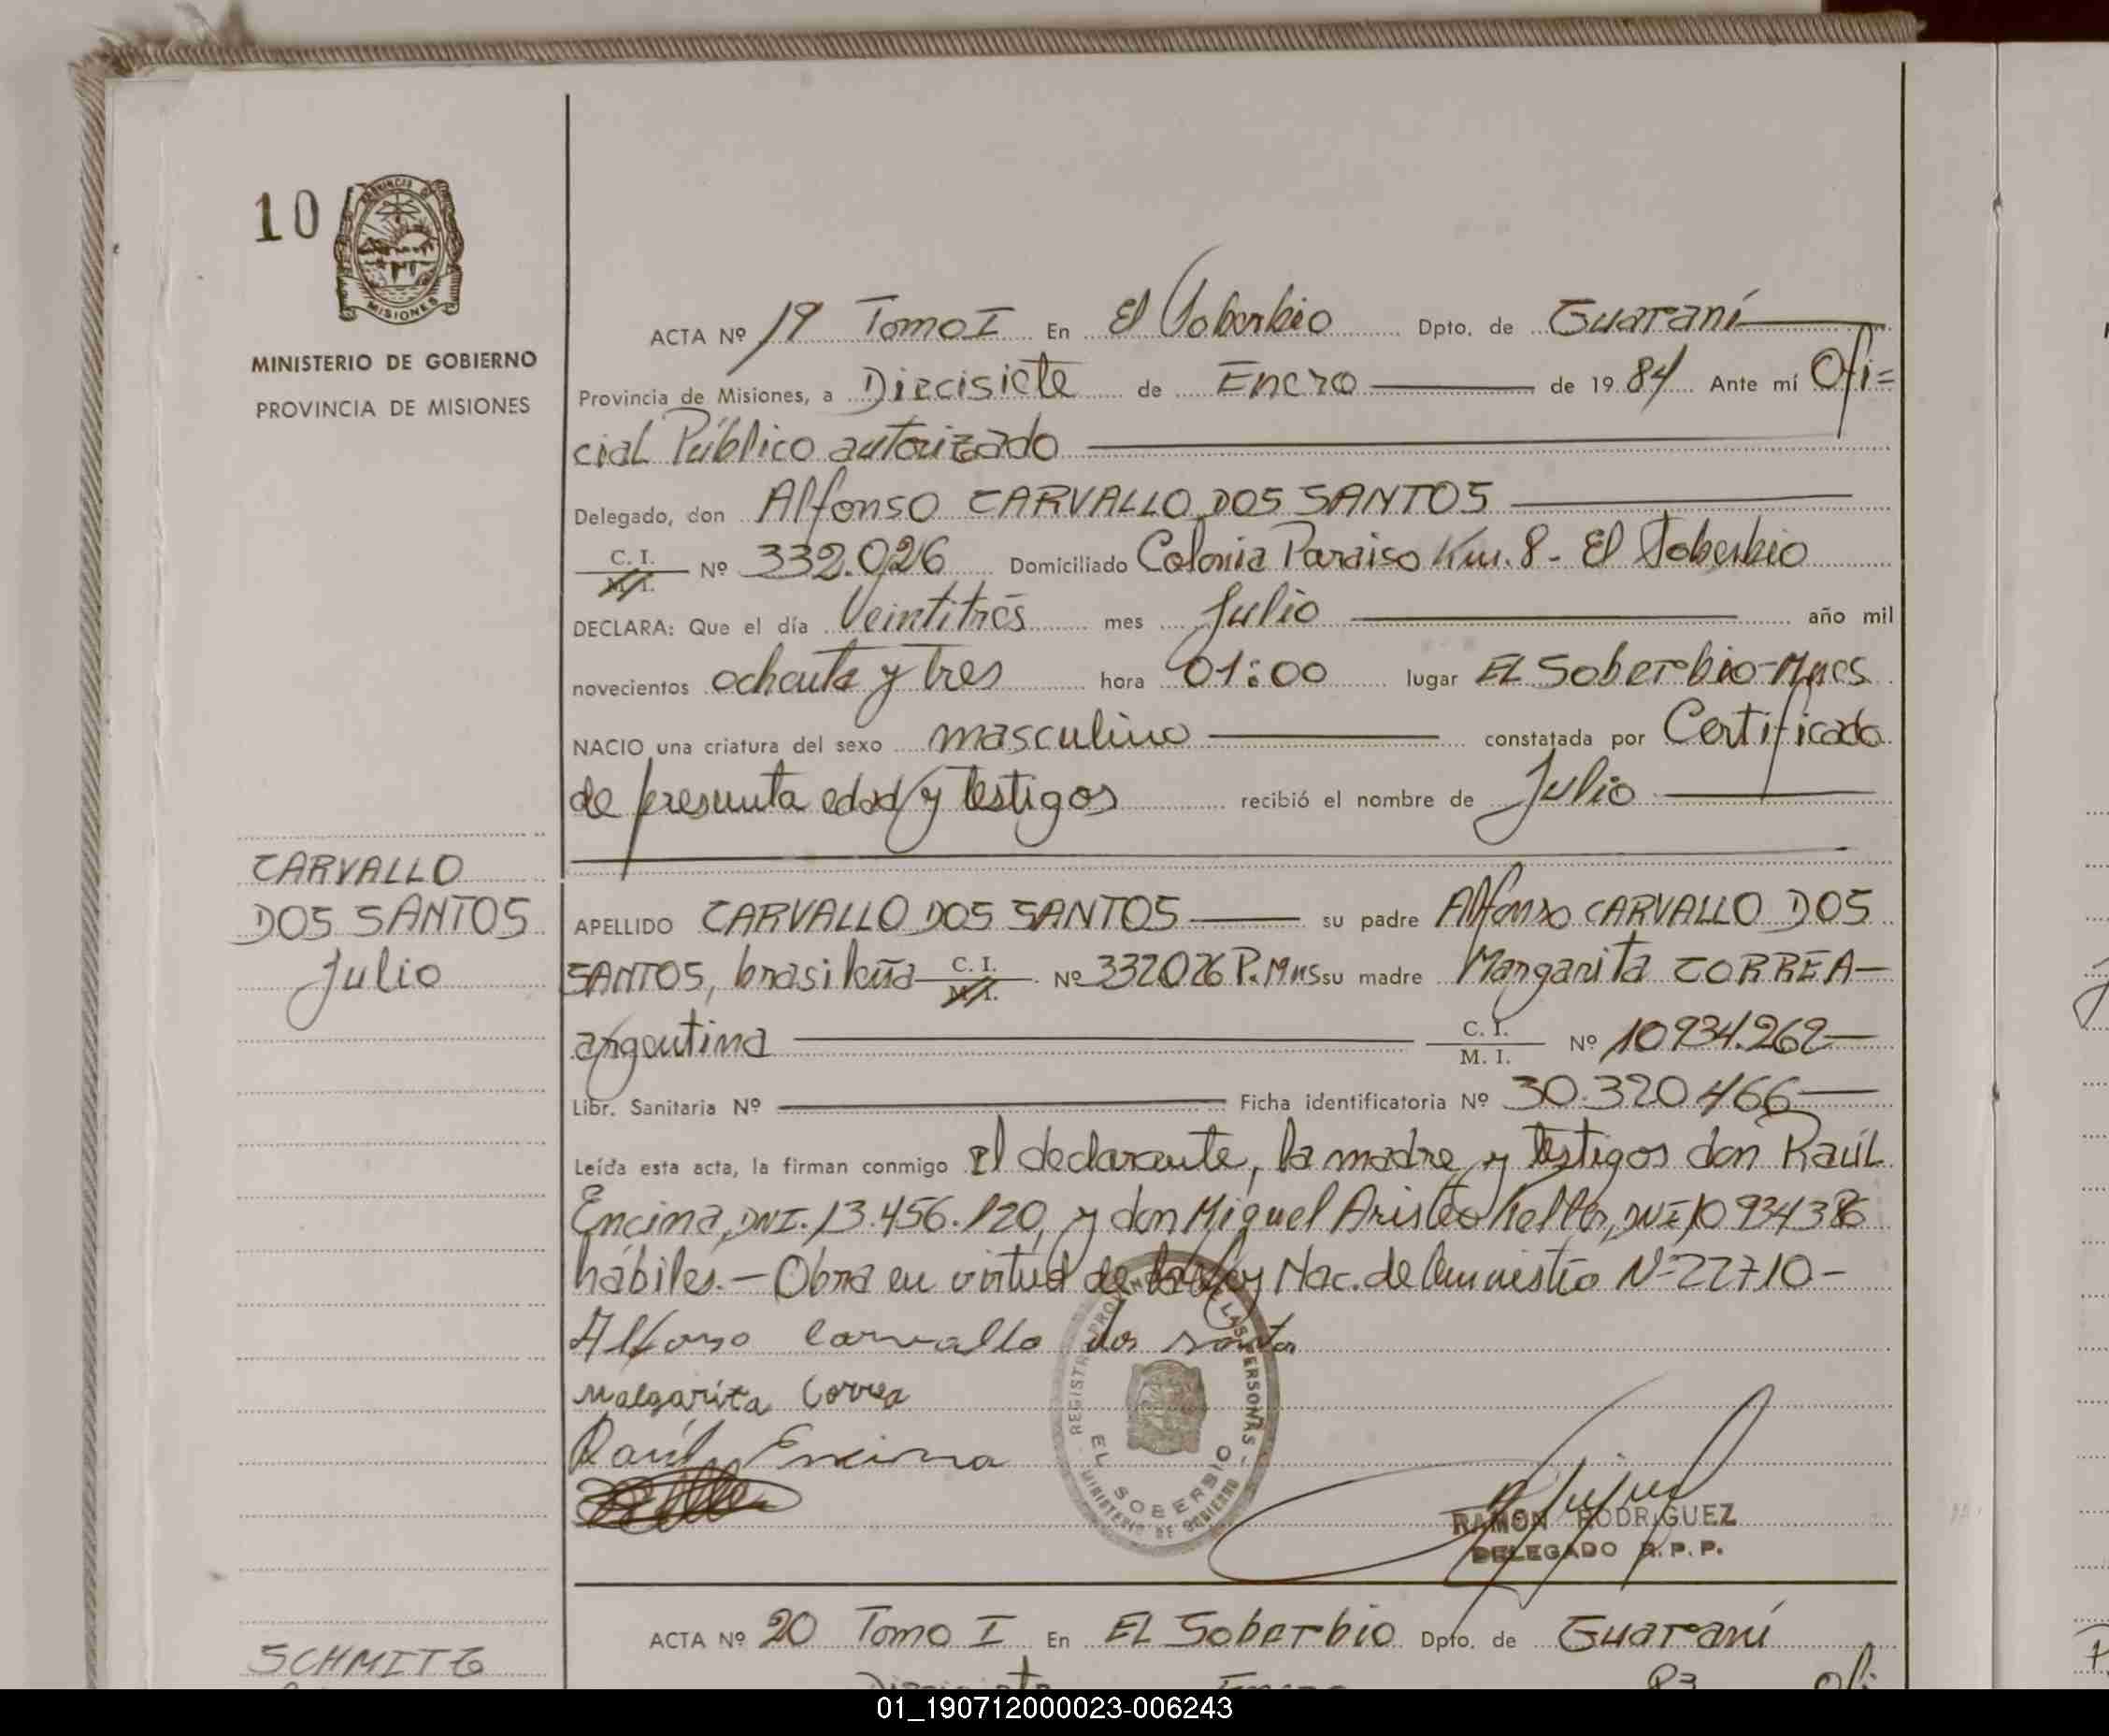 10
PROVINCIA DE
MISIONES
MINISTERIO DE GOBIERNO
PROVINCIA DE MISIONES
ACTA Nº 19 Tomo I En El Soberbio Dpto. de Guaraní
Provincia de Misiones, a Diecisiete de Enero de 1984 Ante mí Ofi=
cial Público autorizado
Delegado, don Alfonso CARVALLO DOS SANTOS
C. I. M. I. Nº 332.026 Domiciliado Colonia Paraiso Km. 8 - El Soberbio
DECLARA: Que el día Veintitrés mes Julio año mil
novecientos ochenta y tres hora 01:00 lugar EL Soberbio-Mnes
NACIO una criatura del sexo masculino constatada por Certificado
de presunta edad y testigos recibió el nombre de Julio
CARVALLO
DOS SANTOS
Julio
APELLIDO CARVALLO DOS SANTOS su padre Alfonso CARVALLO DOS
SANTOS, brasileña C. I. M. I. Nº 332026 P. Mns su madre Margarita CORREA-
argentina C. I. M. I. Nº 10934.262-
Libr. Sanitaria Nº Ficha identificatoria Nº 30.320.466-
Leída esta acta, la firman conmigo El declarante, la madre y testigos don Raúl
Encina, DNI. 13.456.120, y don Miguel Aristeo DNI 10934386
hábiles.- Obra en virtud de la Ley Nac. de Nº 22710-
Alfonso Carvallo dos santos
Malgarita Correa
Raúl Encina
REGISTRO PROVINCIAL DE LAS PERSONAS
EL SOBERBIO
MINISTERIO DE GOBIERNO
RAMON RODRIGUEZ
DELEGADO R. P. P.
ACTA Nº 20 Tomo I En EL Soberbio Dpto. de Guaraní
SCHMITZ
01_190712000023-006243